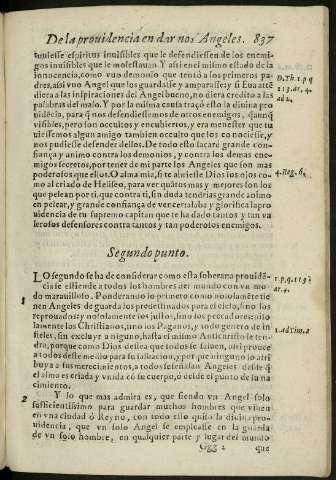 De la prouidencia en dar nos Angeles. 837
tuuiesse espiritus inuisibles que le defendiessen de los enemi-
gos inuisibles que le molestauan. Y asi en el mismo estado de la
innocencia, como vuo demonio que tentò a los primeros pa-
dres, asi vuo Angel que los guardasse y amparasse: y si Eua atẽ
diera a las inspiraciones del Angel bueno, no diera credito a las
palabras del malo. Y por la misma causa traçò esto la diuina pro
uidẽcia, para q̃ nos defendiessemos de otros enemigos, aunq̃
visibles, pero son ocultos y encubiertos, y era menester que tu
uiessemos algun amigo tambien oculto que los conociesse, y
nos pudiesse defender dellos. De todo esto sacarè grande con-
fiança y animo contra los demonios, y contra los demas ene-
migos secretos, por tener de mi parte los Angeles que son mas
poderosos que ellos. O alma mia, si te abriesse Dios los ojos co-
mo al criado de Heliseo, para ver quãtos mas y mejores son los
que pelean por ti, que contra ti, sin duda tendrias grande animo
en pelear, y grande confiança de vencer: alaba y glorifica la pro
uidencia de tu supremo capitan que te ha dado tantos y tan va
lerosos defensores contra tantos y tan poderosos enemigos.
D. Th. 1. p. q
113. ar. 4.
ad 2.
4. Reg. 6.
Segundo punto.
LO segundo se ha de considerar como esta soberana prouidẽ-
cia se estiende a todos los hombres del mundo con vn mo-
do marauilloso. Ponderando lo primero como no solamẽte tie-
nen Angeles de guarda los predestinados para el cielo, sino los
reprouados: y no solamente los justos, sino los peccadores: no so
lamente los Christianos, sino los Paganos, y todo genero de in
fieles, sin excluyr a ninguno, hasta el mismo Antichristo le ten-
dra, porque como Dios dessea que todos se saluen, asi prouee
a todos deste medio para su saluacion, y por que ninguno lo atri
buya a sus merecimientos, a todos señalan Angeles desde q̃
el alma es criada y vnida cõ su cuerpo, ò desde el punto de su na
cimiento.
1. p. q. 113.
ar. 4.
1
1. ad Tim. 2
2
Y lo que mas admira es, que siendo vn Angel solo
sufficientissimo para guardar muchos hombres y a vezes
vna ciudad ò Reyno, con todo esso quiso la diuina pro-
uidencia, que vn solo Angel se empleasse en la guarda
de vn solo hombre, en qualquier parte y lugar del mundo
Ggg 2
que